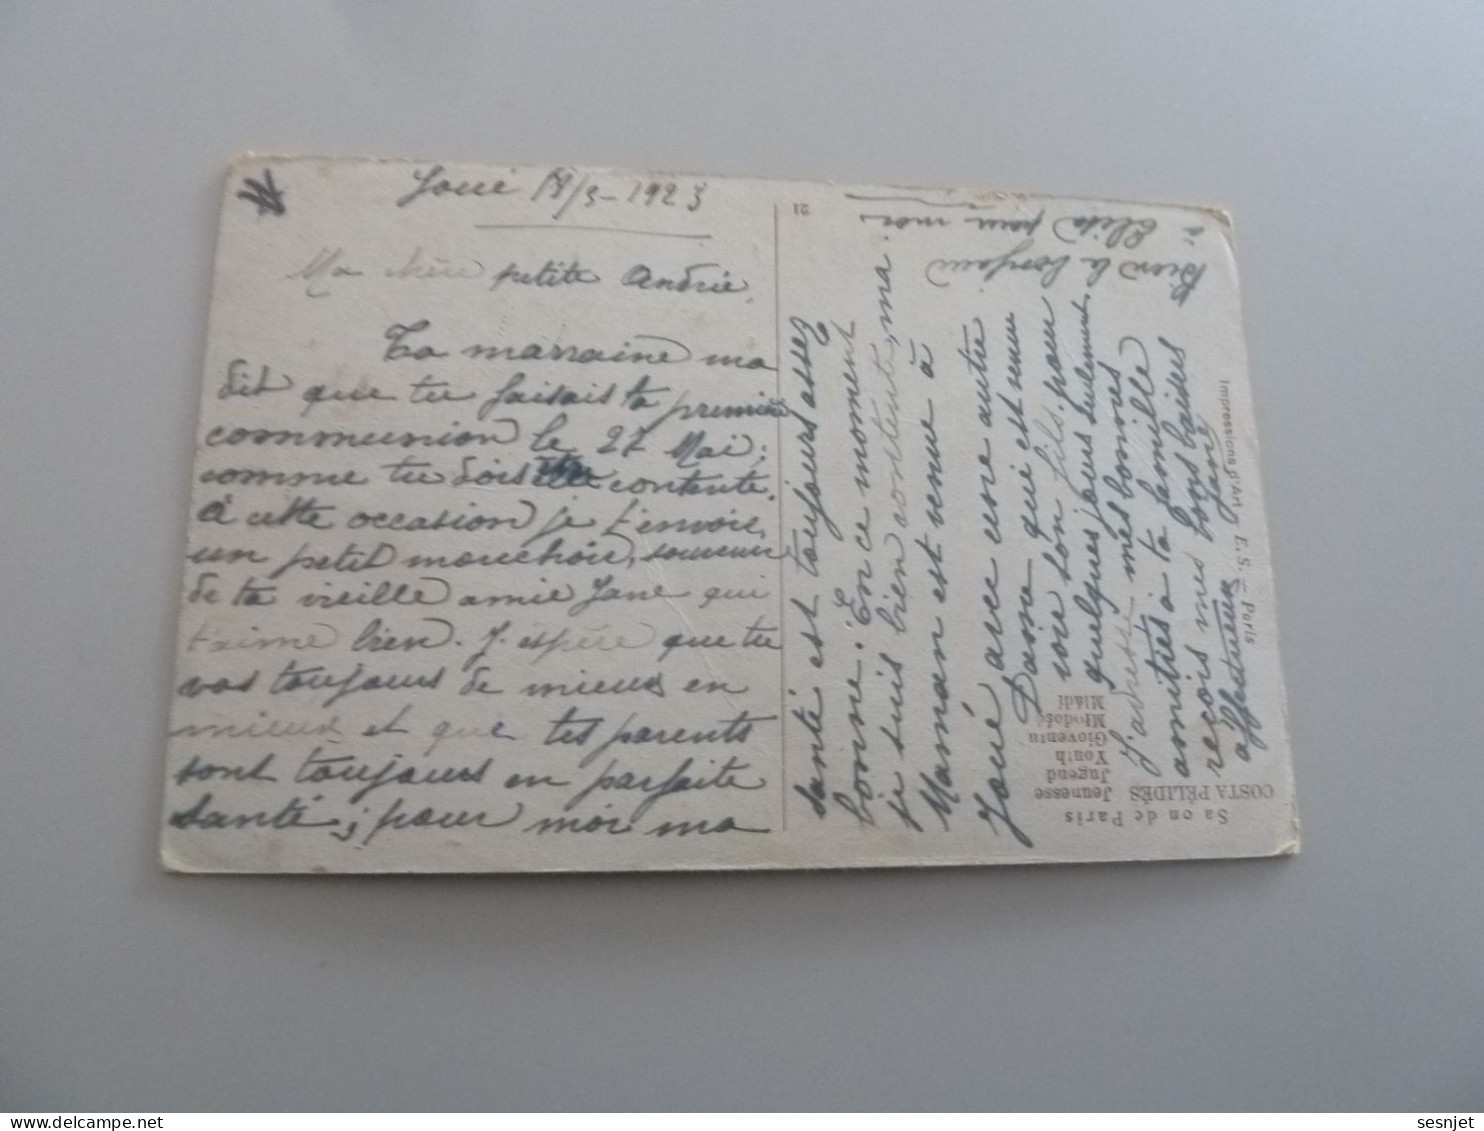 Joué 18/5-1923
Ma chère petite Andrée,
Ta marraine ma
dit que tu faisais ta première
communion le 27 Mai;
comme tu dois contente.
à cette occasion je t'envoie,
un petit mouchoir, souvenir
de ta vieille amie Jane qui
t'aime bien. J'espère que tu
vas toujours de mieux en
mieux et que tes parents
sont toujours en parfaite
santé; pour moi ma
santé est toujours assez
bonne. En ce moment
je suis bien contente, ma
Maman est venue à
Joué avec une autre
Dame qui est venue
voir son fils, pour
quelques jours seulement.
J'adresse mes bonnes
amitiés à ta famille
reçois mes bons baisers
affectueux Jane
Bien le bonjour
à Elisa pour moi.
21
Sa on de Paris
COSTA PÉLIDÈS
Jeunesse
Jugend
Youth
Gioventu
Młodość
Mládí
Impressions d'Art, E. S. - Paris
sesnjet